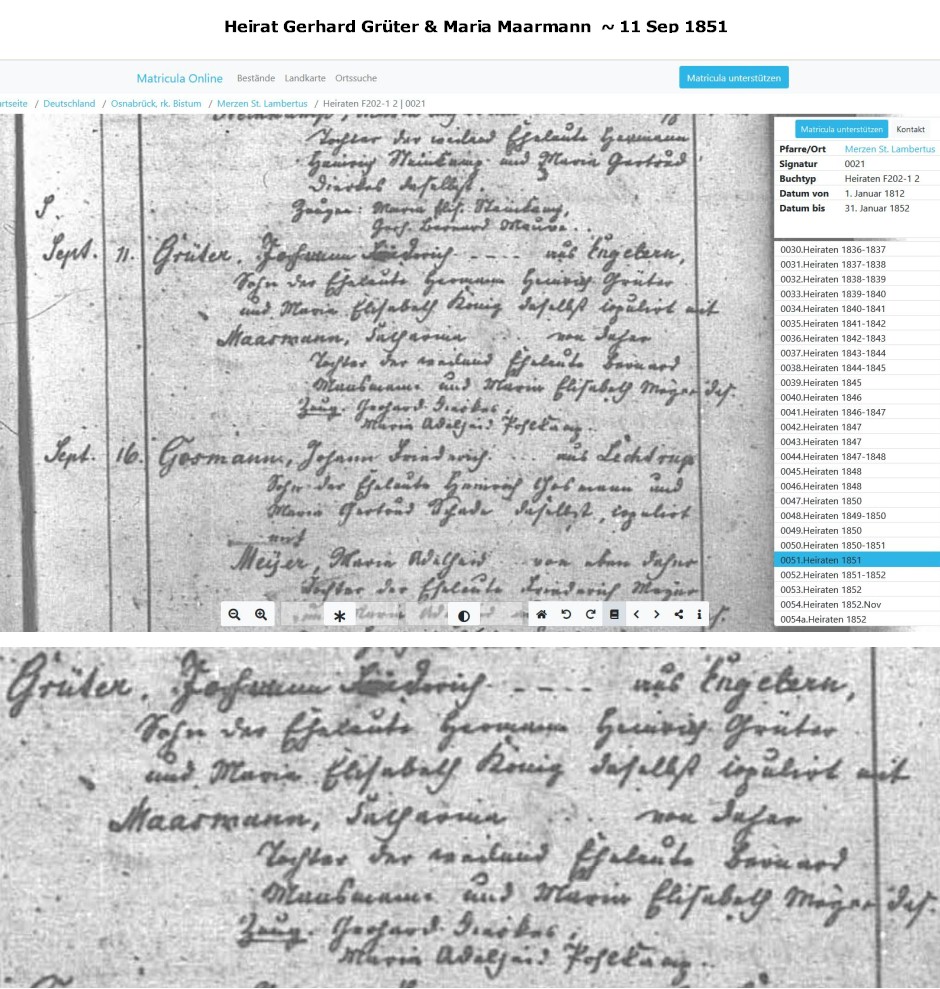 Heirat Gerhard Grüter & Maria Maarmann ~ 11 Sep 1851
Matricula Online Bestände Landkarte Ortssuche Matricula unterstützen
artseite / Deutschland / Osnabrück, rk. Bistum / Merzen St. Lambertus / Heiraten F202-1 2 | 0021
Tochter der weiland Eheleute Hermann
Heinrich Steinkamp und Maria Gertrud
Dierkes daselbst.
Zeugen: Maria Elis. Steinkamp,
Gerh. Bernard
S.
Sept. 11. Grüter, Johann Friederich - - - - aus Engelern,
Sohn der Eheleute Hermann Heinrich Grüter
und Maria Elisabeth König daselbst copulirt mit
Maarmann, Catharina von daher
Tochter der weiland Eheleute Bernard
und Maria Elisabeth Meyer das.
Zeug. Gerhard Dierkes,
Maria Adelheid
Sept. 16. Gosmann, Johann Friederich aus Lechtrup
Sohn der Eheleute Heinrich Gosmann und
Maria Gertrud Schade daselbst, copulirt
mit
Meijer, Maria Adelheid von eben daher
Tochter der Eheleute Friederich Meyer
Matricula unterstützen Kontakt
Pfarre/Ort Merzen St. Lambertus
Signatur 0021
Buchtyp Heiraten F202-1 2
Datum von 1. Januar 1812
Datum bis 31. Januar 1852
0030.Heiraten 1836-1837
0031.Heiraten 1837-1838
0032.Heiraten 1838-1839
0033.Heiraten 1839-1840
0034.Heiraten 1840-1841
0035.Heiraten 1841-1842
0036.Heiraten 1842-1843
0037.Heiraten 1843-1844
0038.Heiraten 1844-1845
0039.Heiraten 1845
0040.Heiraten 1846
0041.Heiraten 1846-1847
0042.Heiraten 1847
0043.Heiraten 1847
0044.Heiraten 1847-1848
0045.Heiraten 1848
0046.Heiraten 1848
0047.Heiraten 1850
0048.Heiraten 1849-1850
0049.Heiraten 1850
0050.Heiraten 1850-1851
0051.Heiraten 1851
0052.Heiraten 1851-1852
0053.Heiraten 1852
0054.Heiraten 1852.Nov
0054a.Heiraten 1852
Grüter, Johann Friederich - - - - aus Engelern,
Sohn der Eheleute Hermann Heinrich Grüter
und Maria Elisabeth König daselbst copulirt mit
Maarmann, Catharina von daher
Tochter der weiland Eheleute Bernard
und Maria Elisabeth Meyer das.
Zeug. Gerhard Dierkes,
Maria Adelheid